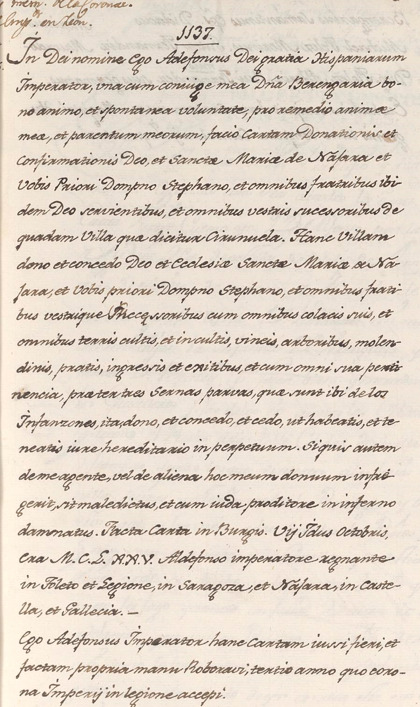 mem. de la Coronaz.
en Leon.
1137.
In Dei nomine Ego Adefonsus Dei gratia Hispaniarum
Imperator, una cum coniuge mea Dña Berengaria bo-
no animo, et spontanea voluntate, pro remedio animæ
meæ, et parentum meorum, facio Cartam Donationis et
Confirmationis Deo, et Sanctæ Mariæ de Náfara et
Vobis Priori Dompno Stephano, et omnibus fratribus ibi-
dem Deo servientibus, et omnibus vestris sucessoribus de
quadam Villa quæ dicitur Cirunuela. Hanc Villam
dono et concedo Deo et Ecclesiæ Sanctæ Mariæ de Ná-
fara, et Vobis priori Dompno Stephano, et omnibus frati-
bus vestrisque succeqsoribus cum omnibus colacis suis, et
omnibus terris cultis, et incultis, vineis, arboribus, molen-
dinis, pratis, ingressis et exitibus, et cum omni sua perti-
nencia, præter tres Sernas parvas, quæ sunt ibi de los
Infanzones, ita, dono, et concedo, et cedo, ut habeatis, et te-
neatis iure hereditario in perpetuum. Si quis autem
de me agente, vel de aliena hoc meum donuum infri-
gerit, sit maledictus, et cum iuda proditore in inferno
damnatus. Facta Carta in Burgis. Vij Idus Octobris,
Era M.C.L.XXV. Aldefonso imperatore regnante
in Toleto et Legione, in Saragoza, et Náfara, in Caste-
lla, et Gallecia. —
Ego Adefonsus Imperator hanc Cartam iussi fieri, et
factam propria manu Roboravi, tertio anno quo coro-
na Imperij in legione accepi.